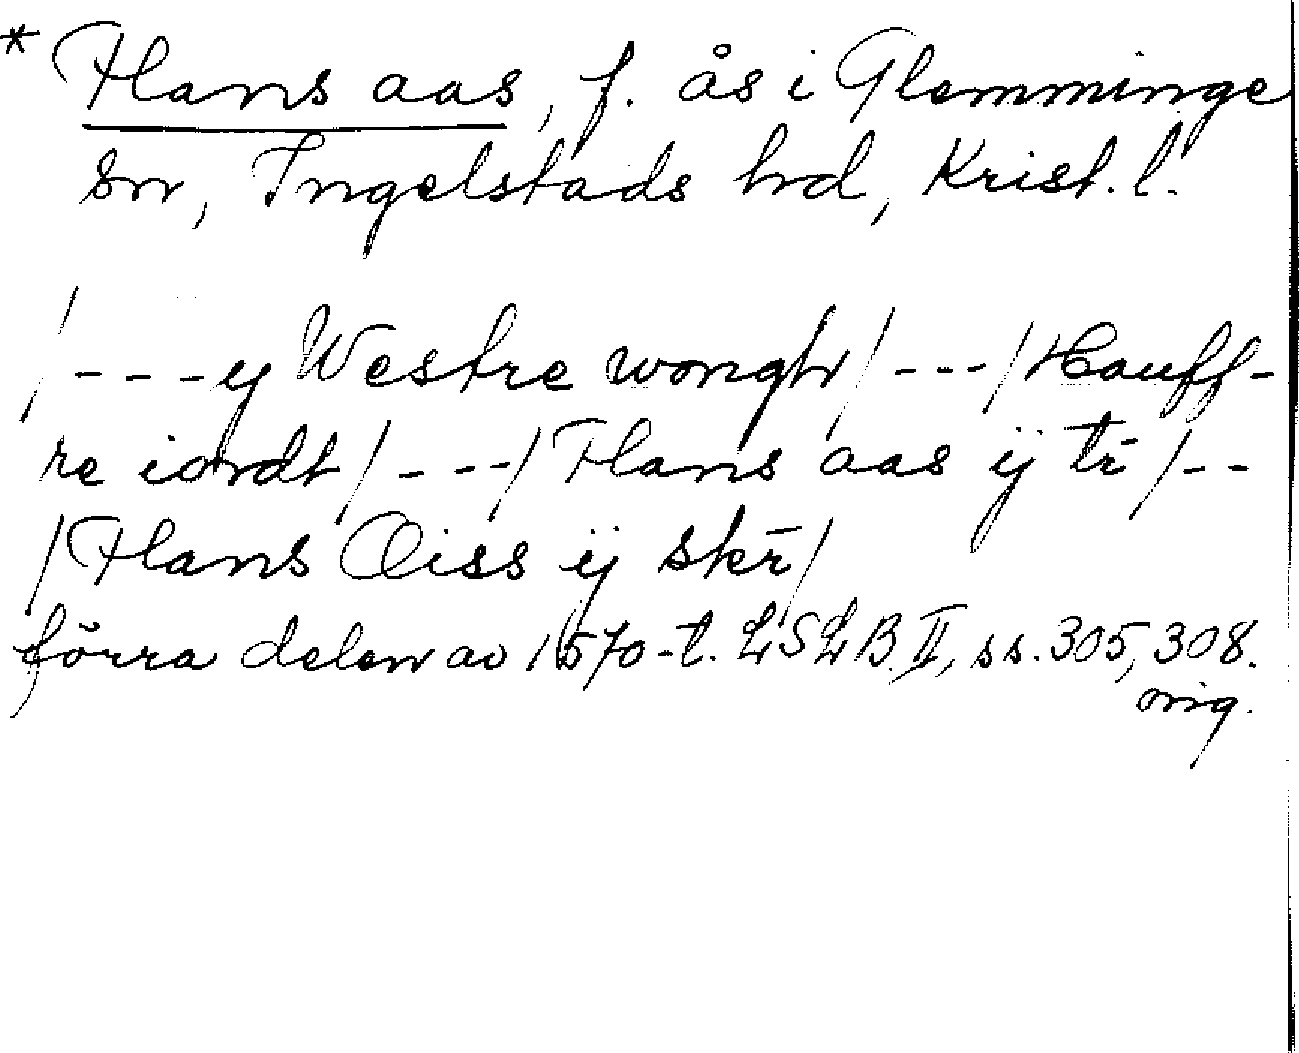 * Hans aas, f. ås i Glemminge
sn, Ingelstads hd, Krist. l.
/---y Westre wongh/---/Hauff-
re iordt/---/Hans aas ij tr̄/--
/Hans Oiss ij skr̄/
förra delen av 1570-t. LSLB. II, ss. 305, 308.
orig.